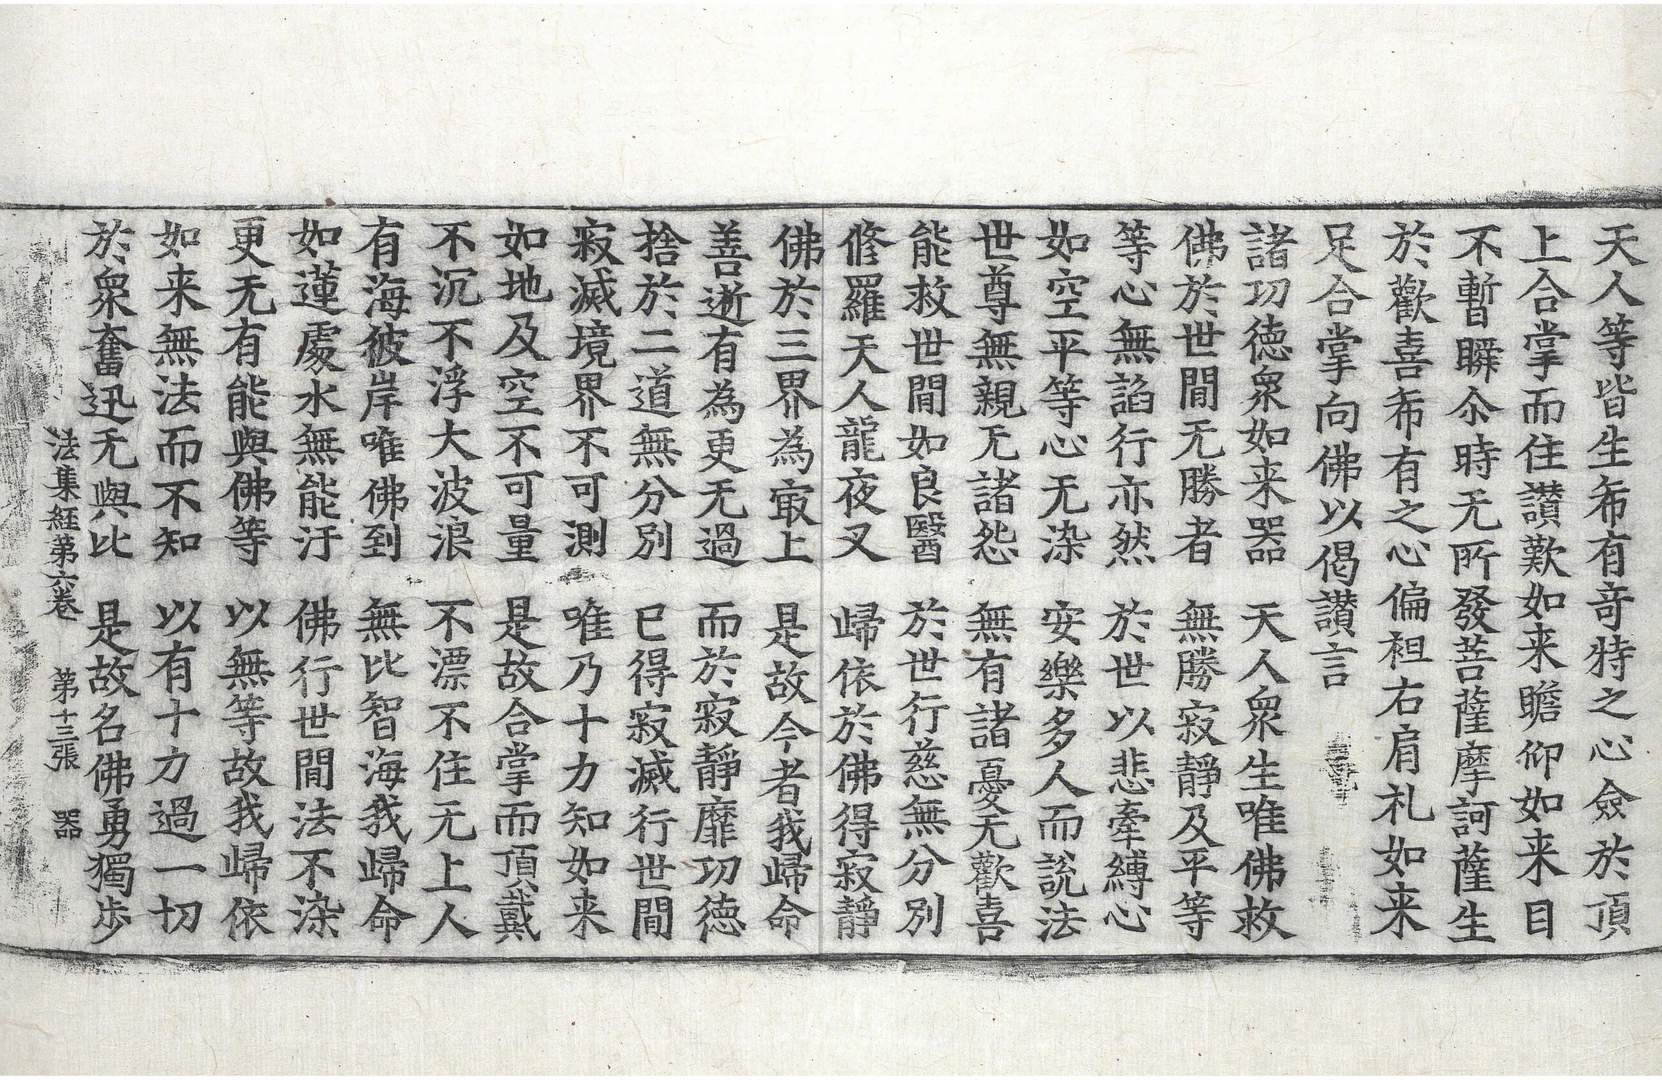 天人等皆生布有竒特之心僉於頂
上合掌而住讃歎如来瞻仰如来目
不暫瞬尒時无所發菩薩摩訶薩生
於歡喜希有之心偏袒右肩礼如来
足合掌向佛以偈讃言
諸功德衆如来器　天人衆生唯佛救
佛於世間无勝者　無勝寂靜及平等
等心無諂行亦然　於世以悲牽縛心
如空平等心无染　安樂多人而說法
世尊無親无諸怨　無有諸憂无歡喜
能救世間如良醫　於世行慈無分別
修羅天人龍夜叉　歸依於佛得寂靜
佛於三界為㝡上　是故今者我歸命
善逝有為更无過　而於寂靜靡功德
捨於二道無分別　已得寂滅行世間
寂滅境界不可測　唯乃十力知如来
如地及空不可量　是故合掌而頂戴
不沉不浮大波浪　不漂不住无上人
有海彼岸唯佛到　無比智海我歸命
如蓮處水無能汙　佛行世間法不染
更无有能與佛等　以無等故我歸依
如来無法而不知　以有十力過一切
於衆奮迅无與比　是故名佛勇獨步
法集經第六卷　第十三張　器